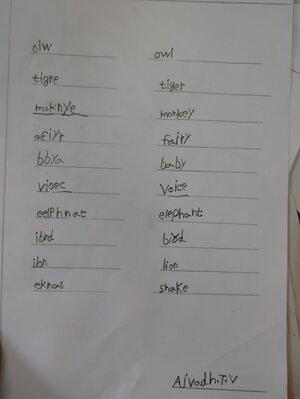 olw owl
tigre tiger
moknye monkey
afiyr fairy
bbya baby
vioec voice
eelphnat elephant
ibrd bird
ilon lion
eknas snake
Aivadh.T.V